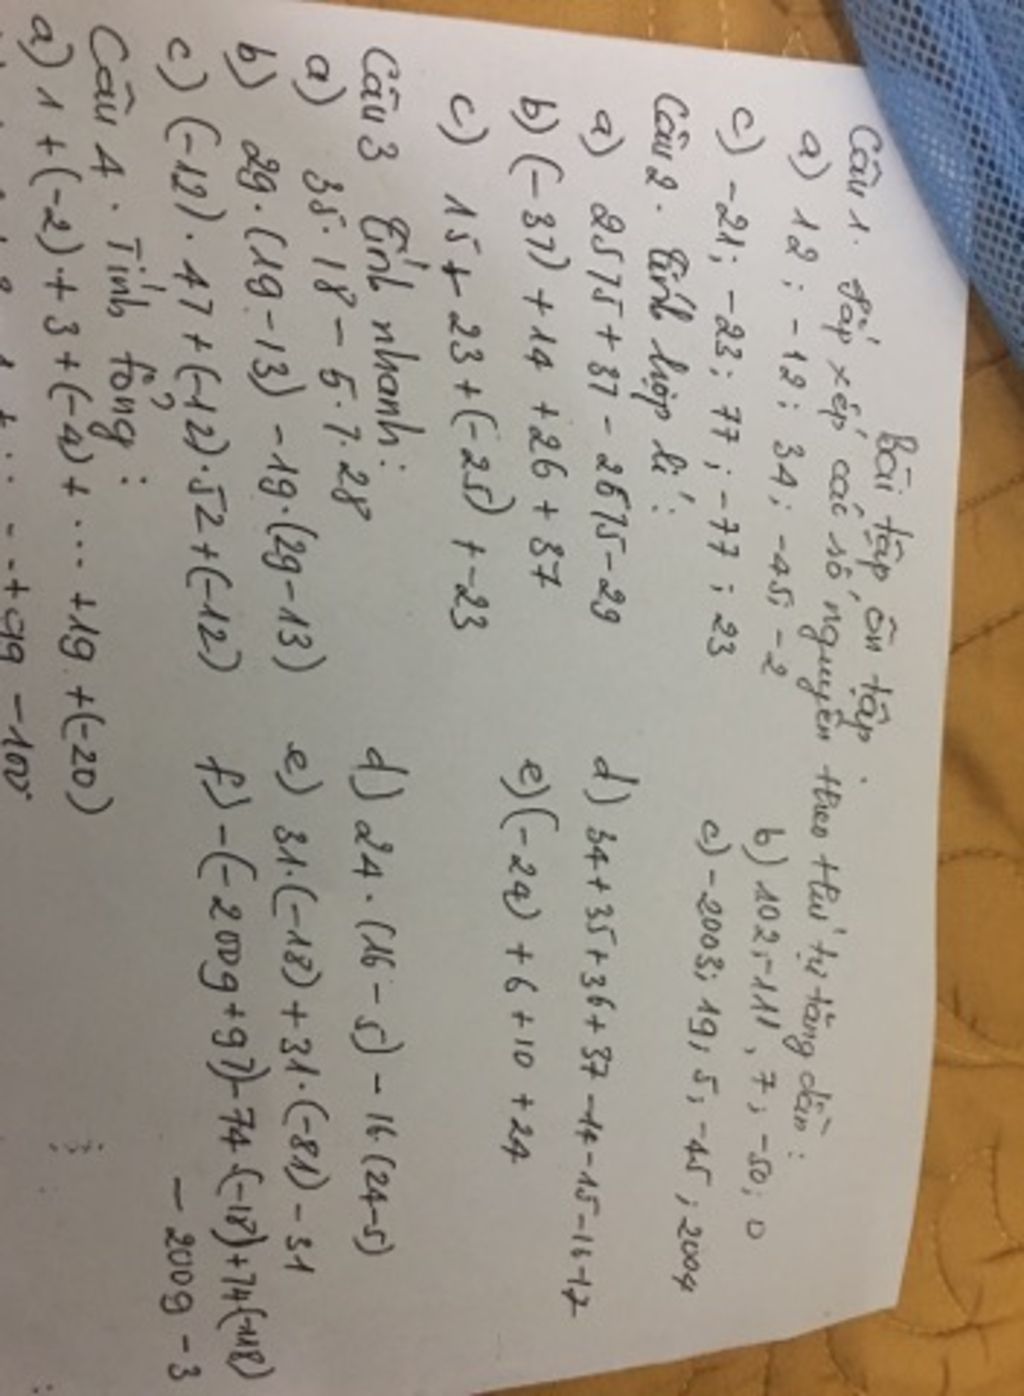 Bài tập ôn tập.
Câu 1. Sắp xếp các số nguyên theo thứ tự tăng dần:
a) 12; -12; 34; -45; -2
b) 102; -111, 7; -50; 0
c) -21; -23; 77; -77; 23
c) -2003; 19; 5; -45; 2004
Câu 2. Tính hợp lí:
a) 2575 + 37 - 2675 - 29
d) 34 + 35 + 36 + 37 - 14 - 15 - 16 - 17
b) (-37) + 14 + 26 + 37
e) (-24) + 6 + 10 + 24
c) 15 + 23 + (-25) + -23
Câu 3 Tính nhanh:
a) 35. 18 - 5. 7. 28
d) 24. (16 - 5) - 16 (24-5)
b) 29. (19 - 13) - 19. (29 - 13)
e) 31. (-18) + 31. (-81) - 31
c) (-12). 47 + (-12). 52 + (-12)
f) - (-2009 + 97) - 74 (-18) + 74 (-118)
- 2009 - 3
Câu 4. Tính tổng:
a) 1 + (-2) + 3 + (-4) + ... + 19 + (-20)
+ 99 - 100